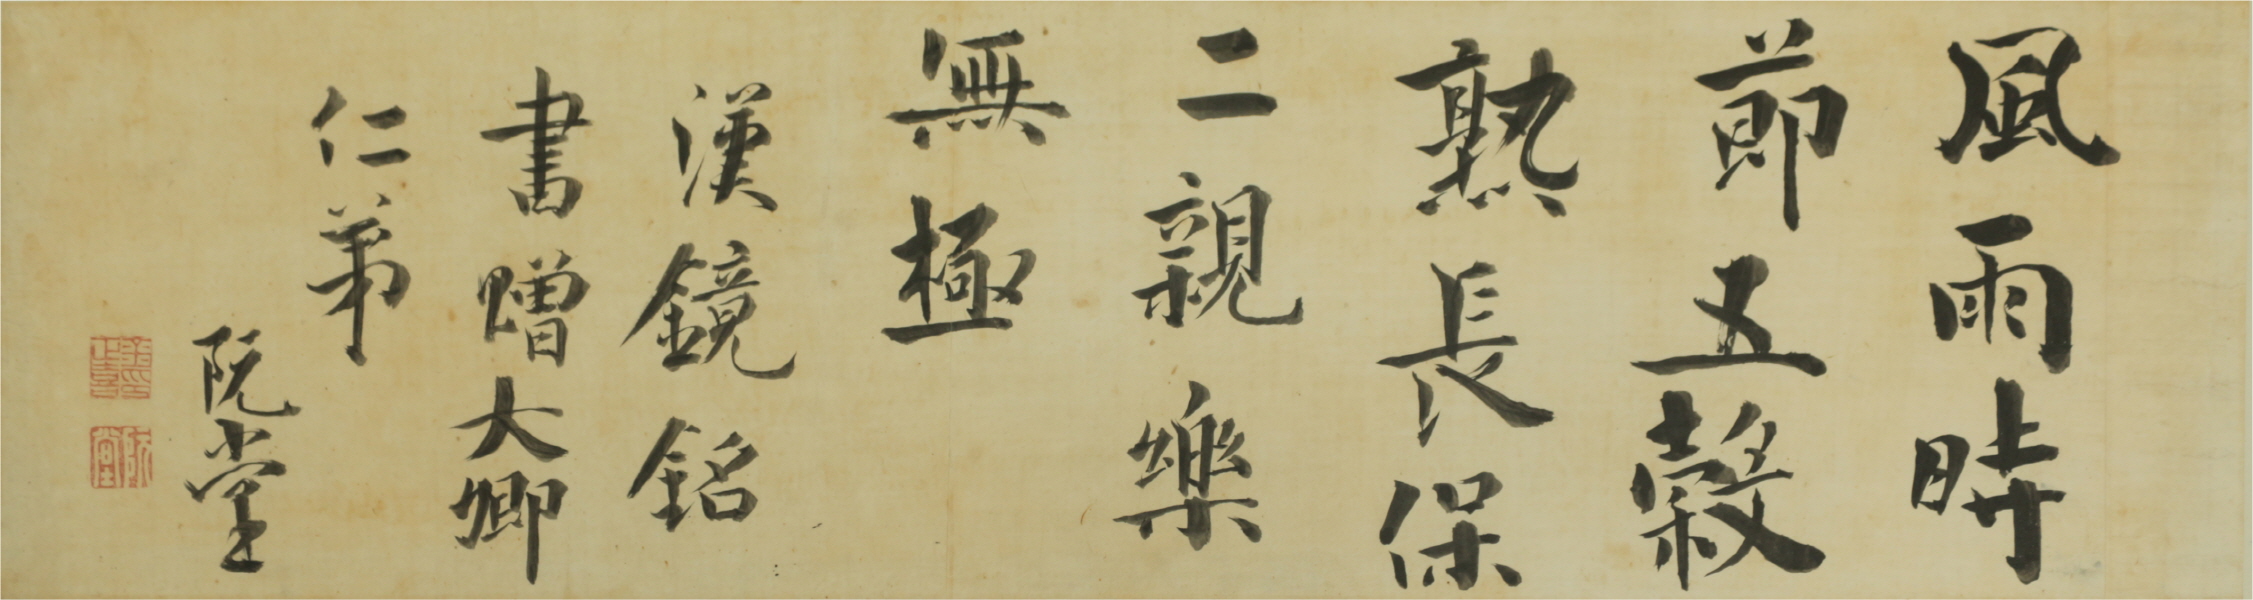 風雨時
節五穀
熟長保
二親樂
無極
漢鏡銘
書贈大卿
仁弟
阮堂
阮堂